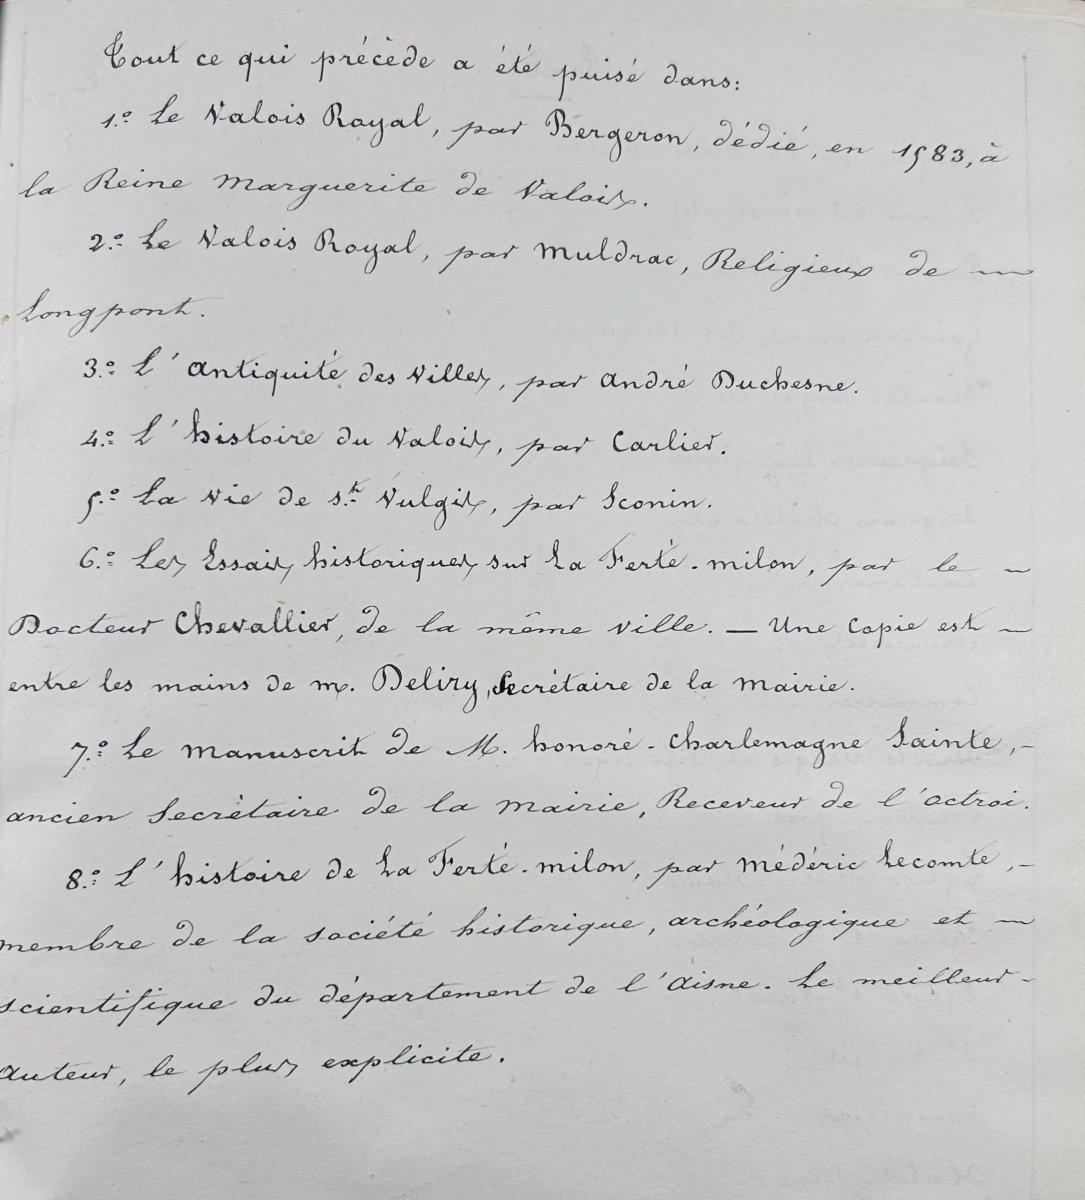 Tout ce qui précède a été puisé dans:
1.° Le Valois Royal, par Bergeron, dédié, en 1583, à
la Reine Marguerite de Valois.
2.° Le Valois Royal, par Muldrac, Religieux de —
Longpont.
3.° L'antiquité des villes, par André Duchesne.
4.° L'histoire du Valois, par Carlier.
5.° La vie de St. Vulgis, par Sconin.
6.° Les Essais historiques sur La Ferté-milon, par le —
Docteur Chevallier, de la même ville. — Une copie est —
entre les mains de M. Deliry, Secrétaire de la mairie.
7.° Le manuscrit de M. honoré-Charlemagne Sainte, -
ancien Secrétaire de la Mairie, Receveur de l'octroi.
8.° L'histoire de La Ferté-milon, par Médéric Lecomte, -
membre de la société historique, archéologique et —
scientifique du département de l'Aisne. Le meilleur -
auteur, le plus explicite.